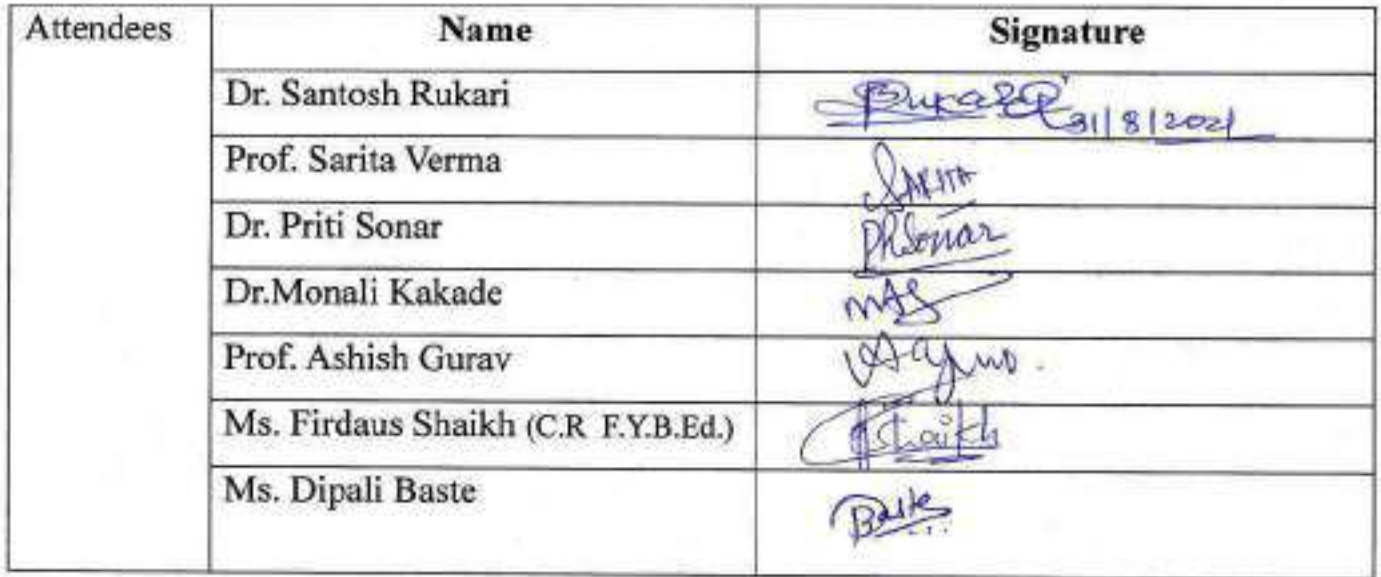 Attendees Name Signature
Dr. Santosh Rukari Rukari 31/8/2021
Prof. Sarita Verma SARITA
Dr. Priti Sonar PRSonar
Dr.Monali Kakade
Prof. Ashish Gurav
Ms. Firdaus Shaikh (C.R F.Y.B.Ed.) Shaikh
Ms. Dipali Baste Baste